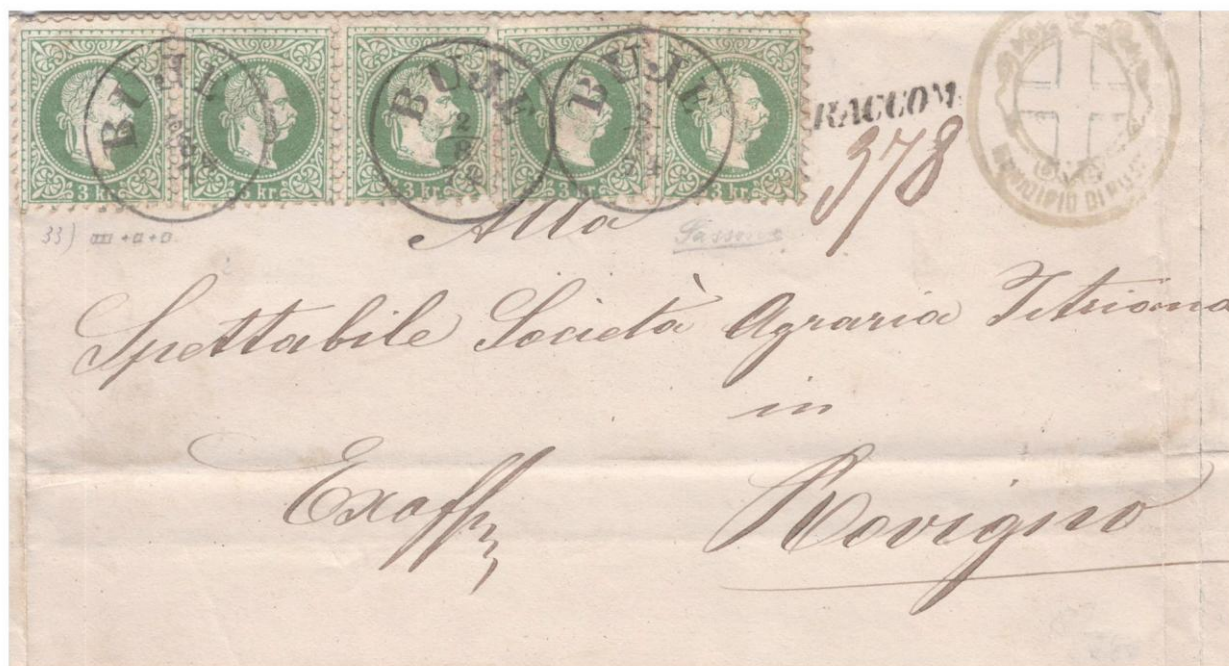 3 kr. 3 kr. 3 kr. 3 kr. 3 kr.
BUJE
BUJE
2
8
BUJE
RACCOM.
378
MUNICIPIO DI BUJE
33)
Alla
Spettabile Società Agraria Istriana
in
Exoffo
Rovigno